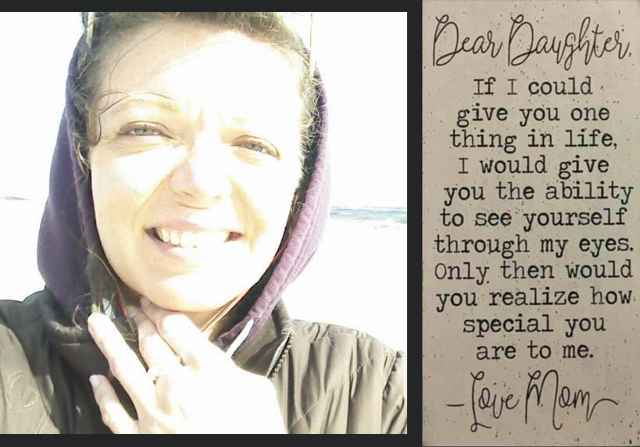 Dear Daughter,
If I could
give you one
thing in life,
I would give
you the ability
to see yourself
through my eyes.
Only then would
you realize how
special you
are to me.
-Love Mom